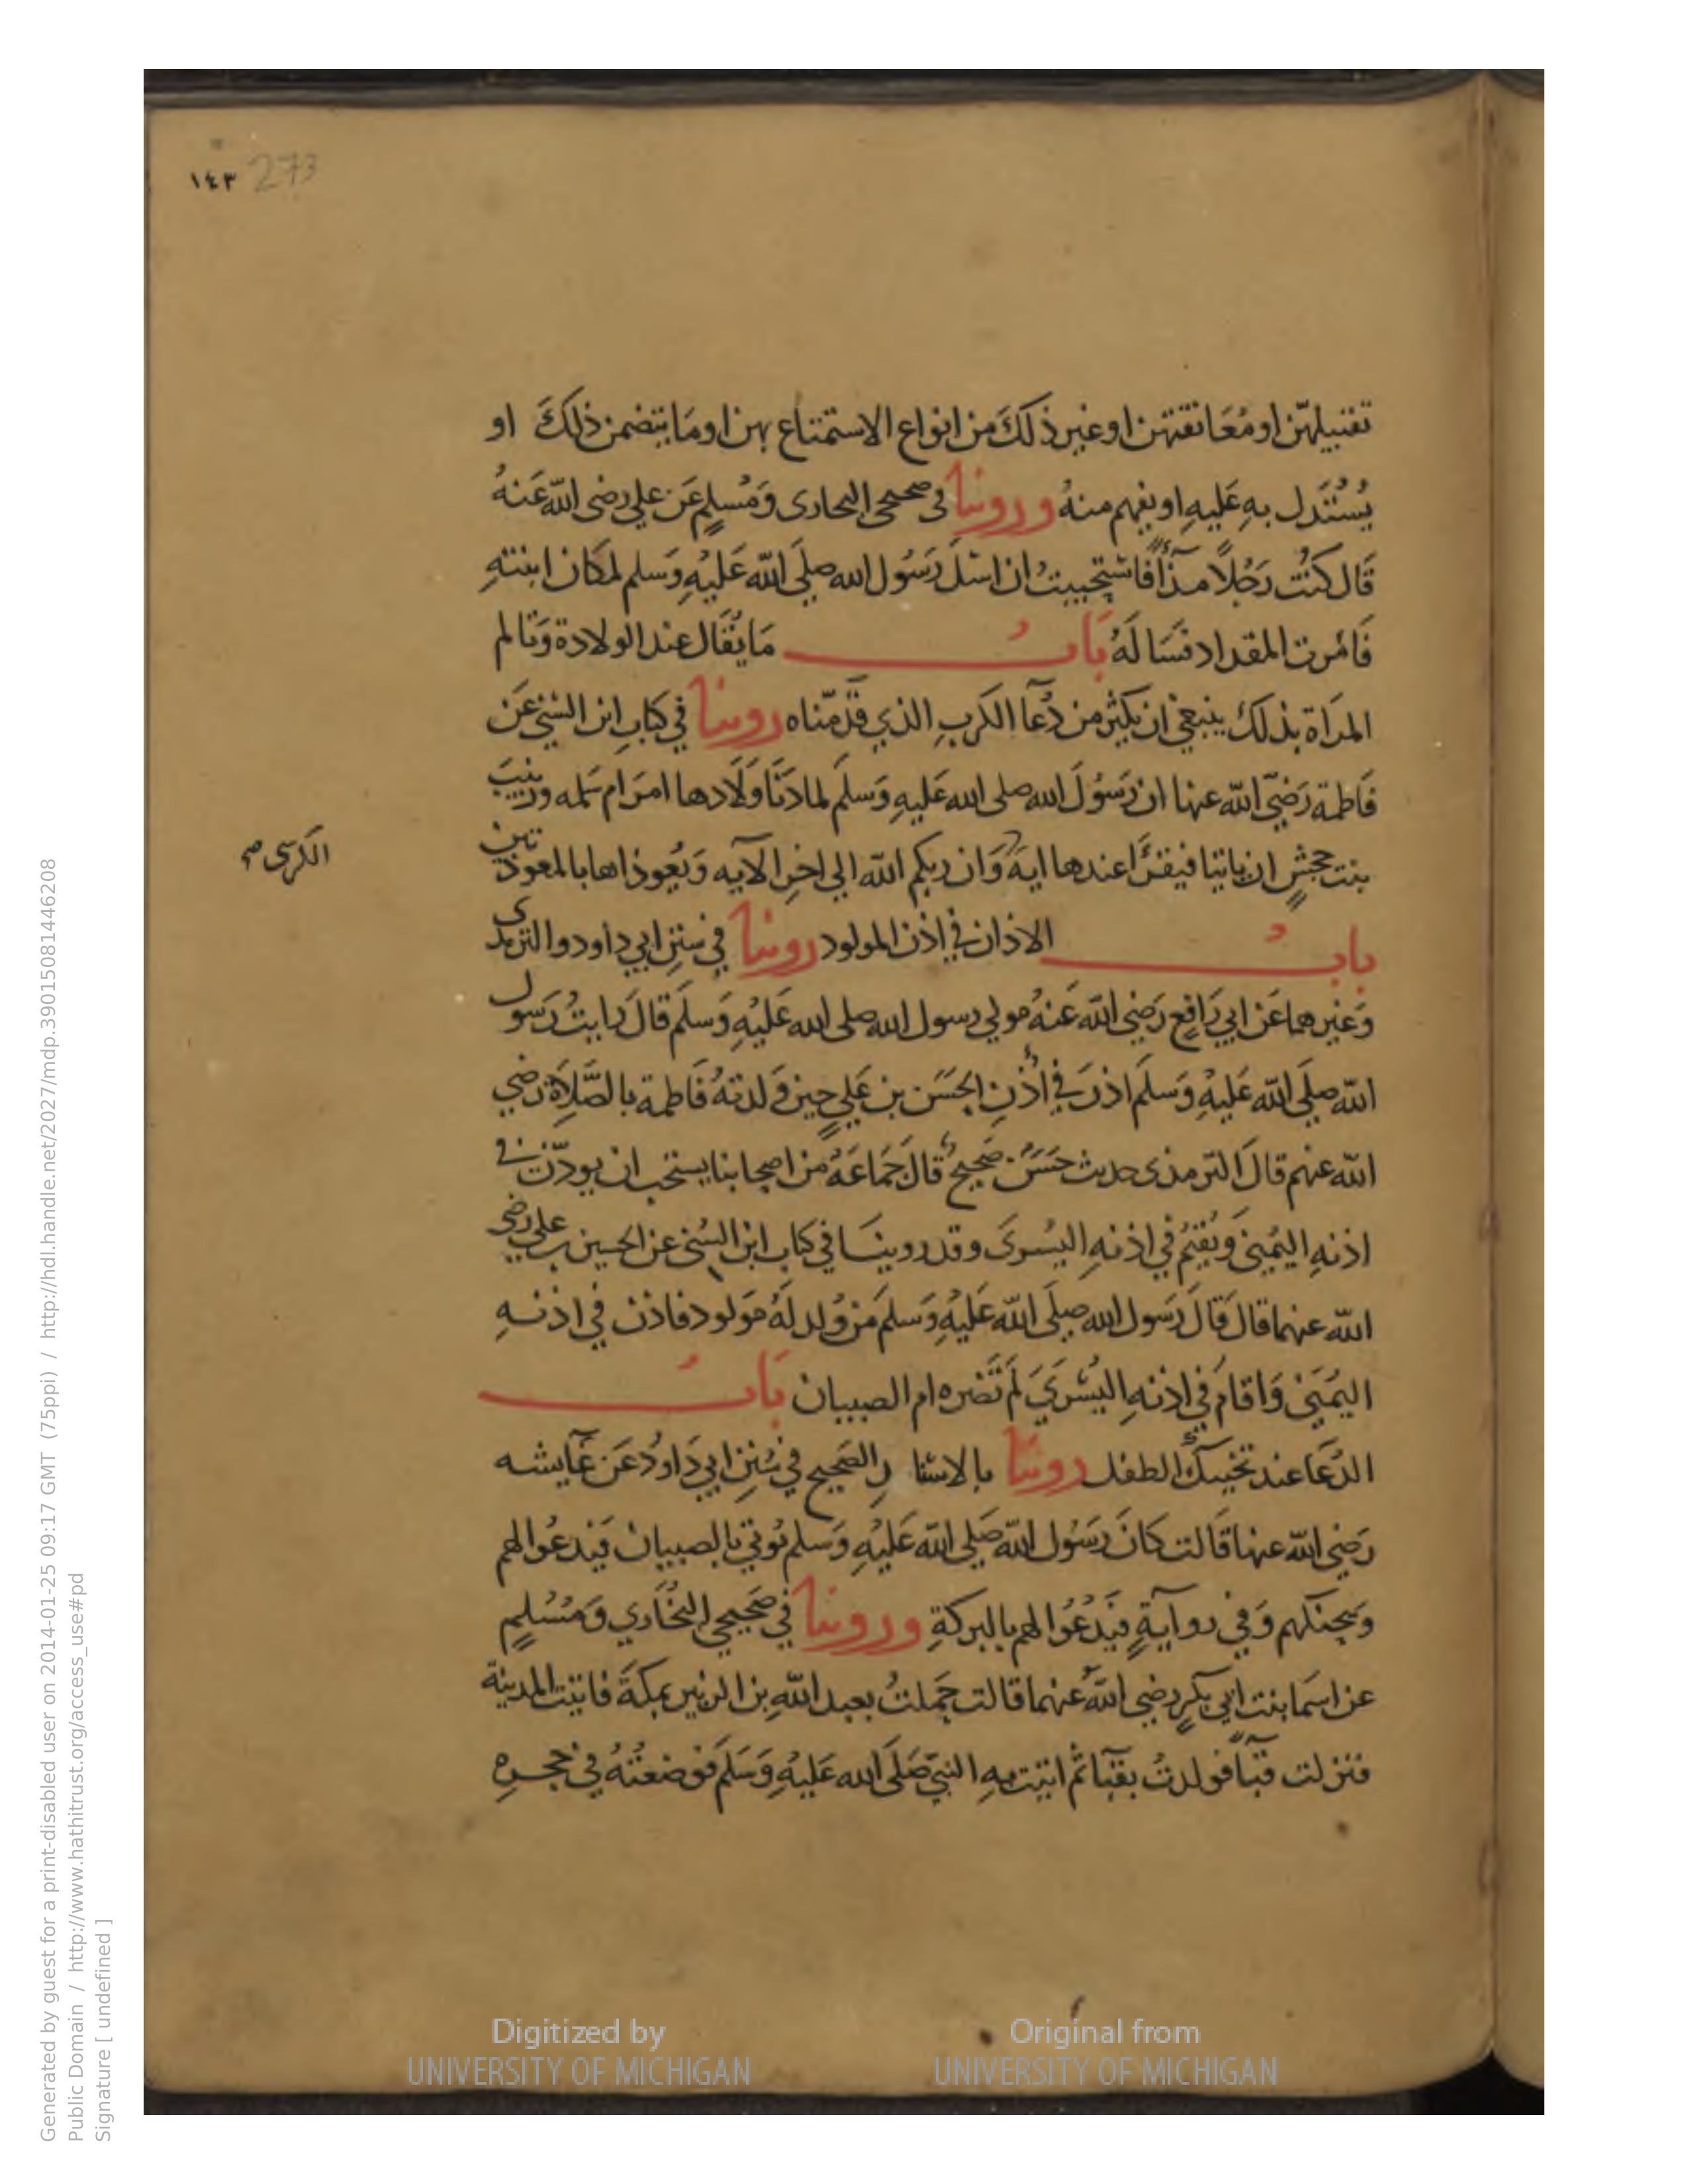 ١٤٣ 273
تقبيلهّن او مُعَانقتهن او غير ذلكَ من انواع الاستمتاع بهن او مَا يتضمن ذلكَ او
يُسْتَدل بهِ عَليهِ او يفهم منهُ وروينا فى صحيحى البخارى وَمُسلمٍ عَن على رضى اللّه عَنهُ
قَال كنتُ رَجُلًا مذآً فاستحييتُ ان اسئلَ رَسُول الله صلىَ اللّه عَليْهِ وَسلم لمكان ابنتهِ
فَامَرت المقداد فسَالَهُ بَابُ مَا يُقَال عند الولادة وَتالم
المرَاة بذلك ينبغي ان يكثر من دُعَا الكربِ الذي قدّمناه روينا في كتابِ ابن السّني عَن
فَاطمة رَضيَ اللّه عنها ان رَسُولَ الله صلى الله عَليهِ وَسلَم لما دَنَا وَلَادها امرَ ام سَلمه وزينبَ
بنت جحشٍ ان ياتيا فيقرَا عندها ايةَ وَان ربكم اللّه الي اخرِ الآيه وَيُعوذاها بالمعوذتين
الكرسى صح
بابُ الاذان في اذن المولود روينا في سنن ابي داود والترمذى
وَغيرهما عَن ابي رَافِع رَضي اللّه عَنهُ مولي رسول الله صلى الله عَليْهِ وَسلَم قالَ رَايتُ رَسول
اللّه صلَى اللّه عَليْهِ وَسلَم اذنَ في اُذُنِ الحَسَن بن عَليٍ حين وَلدتهُ فَاطمة بالصَّلاَة رَضي
اللّه عنهم قالَ الترمذى حديث حَسَنٌ صَحيحٌ قالَ جَمَاعَةٌ من اصحابنا يستحب ان يوذّن في
اذنهِ اليُمنىَ وَيُقيمُ في اذنهِ اليُسرىَ وقد روينَا في كتاب ابن السُنى عن الحسين بن على رضى
اللّه عنهما قالَ قَالَ رَسول الله صلَى اللّه عَليْهِ وَسلمَ من وُلد لهُ مَولود فاذن في اذنهِ
اليُمنىَ وَاقامَ في اذنهِ اليُسْريَ لمَ تَضره ام الصبيان بَابُ
الدُعَا عند تحنيكُ الطفل روينا بالاسنا دِ الصَحيح في سُنن ابي دَاودُ عَن عَايشه
رَضي اللّه عنها قَالت كانَ رَسُول اللّه صَلى اللّه عَليْهِ وَسلم يُوتي بالصبيان فيَدعُوا لهم
وَيحنكهم وَفي روآيةٍ فيَدْعُوا لهم بالبركةِ وروينا في صَحيحي البُخَاري وَمُسْلمٍ
عن اسمَا بنت ابي بكرٍ رضي اللّه عنهما قالت حَملتُ بعبد اللّهِ بن الزبير بمكةَ فاتيت المدينة
فنزلت قبآً فولدتُ بقبآَ ثم اتيت بهِ النبيّ صَلَى الله عَليْهِ وَسَلَم فوضعتُهُ في حجرهِ
Digitized by
UNIVERSITY OF MICHIGAN
Original from
UNIVERSITY OF MICHIGAN
Generated by guest for a print-disabled user on 2014-01-25 09:17 GMT (75ppi) / http://hdl.handle.net/2027/mdp.39015081446208
Public Domain / http://www.hathitrust.org/access_use#pd
Signature [ undefined ]